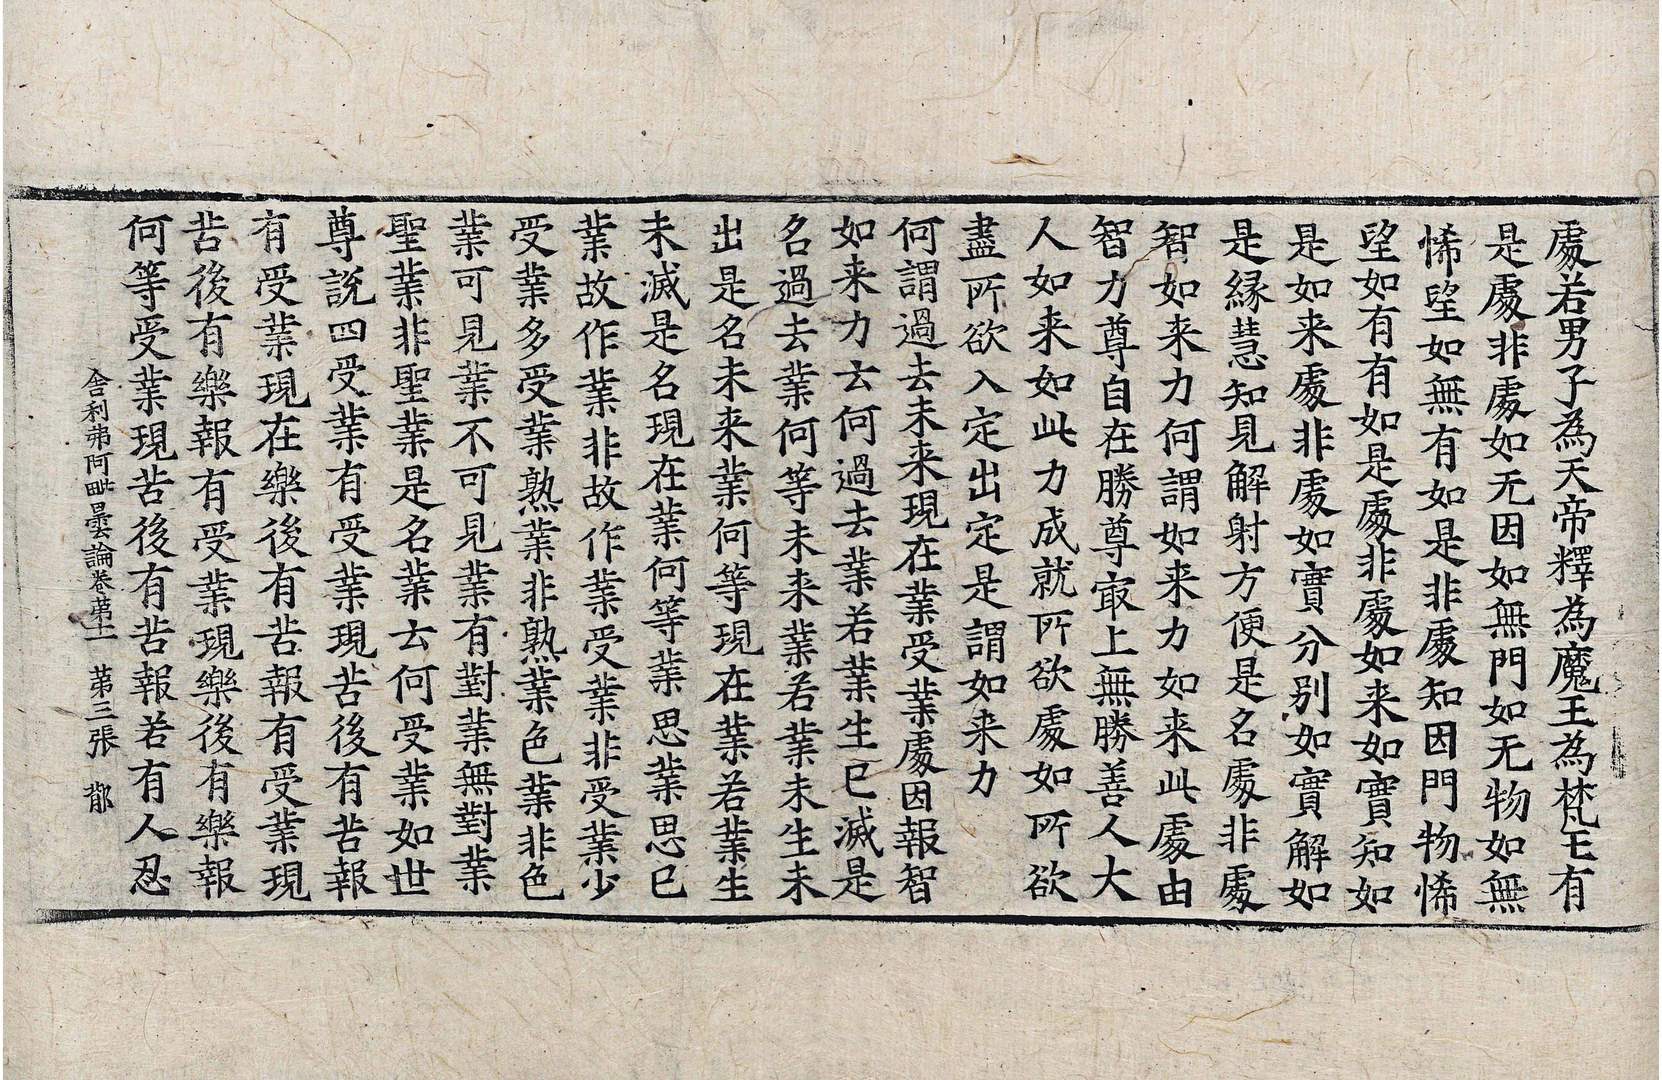 處若男子為天帝釋為魔王為梵王有
是處非處如无因如無門如无物如無
悕望如無有如是非處知因門物悕
望如有有如是處非處如来如實知如
是如来處非處如實分别如實解如
是緣慧知見解射方便是名處非處
智如来力何謂如来力如来此處由
智力尊自在勝尊㝡上無勝善人大
人如来如此力成就所欲處如所欲
盡所欲入定出定是謂如来力
何謂過去未来現在業受業處因報智
如来力云何過去業若業生已滅是
名過去業何等未来業若業未生未
出是名未来業何等現在業若業生
未滅是名現在業何等業思業思已
業故作業非故作業受業非受業少
受業多受業熟業非熟業色業非色
業可見業不可見業有對業無對業
聖業非聖業是名業云何受業如世
尊說四受業有受業現苦後有苦報
有受業現在樂後有苦報有受業現
苦後有樂報有受業現樂後有樂報
何等受業現苦後有苦報若有人忍
舍利弗阿毗曇論卷苐十一 苐三張 鄁